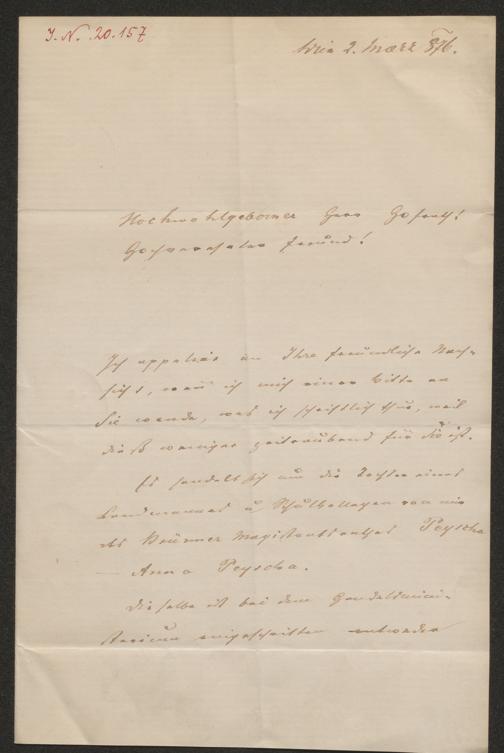 J. N. 20.157
Wien 2. Maerz 876.
Hochwohlgeborner Herr Hofrath!
Hochverehrter Freund!
Ich appelire an Ihre freundliche Nach-
sicht, wenn ich mich einer Bitte an
Sie wende, was ich schriftlich thue, weil
dieß weniger zeitraubend für Sie ist.
Es handelt sich um die Tochter eines
Landmannes u. Schulkollegen von mir
des Brünner Magistratsrathes Peyscha
— Anna Peyscha.
Dieselbe ist bei dem Handelsmini-
sterium eingeschritten entweder